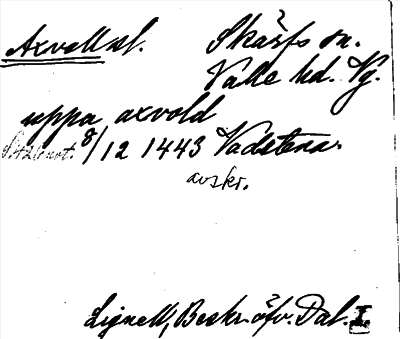 Axvall sl. Skärfs sn.
Valle hd. Vg.
uppa axvold
8/12 1443 Vadstena.
avskr.
Lignell, Beskr. öfv. Dal. I.